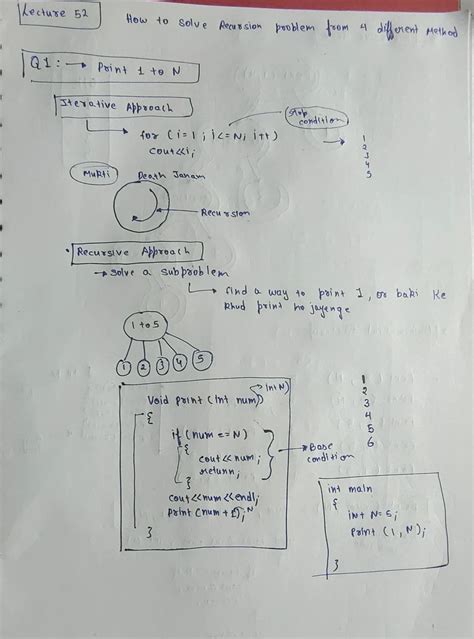 Lecture 52
How to solve Recursion problem from 4 different Method
Q1: → Print 1 to N
Iterative Approach
Stop condition
for (i=1; i<=N; i++)
cout<<i;
1
2
3
4
5
Mukti
Death Janam
Recursion
Recursive Approach
→ solve a subproblem
find a way to print 1, or baki ke
khud print ho jayenge
1 to 5
1 2 3 4 5
int N)
Void print (int num)
{
if (num == N)
{
cout<<num;
return;
}
Base condition
cout<<num<<endl;
print(num+1);
N
}
1
2
3
4
5
6
int main
{
int N=5;
print (1, N);
}